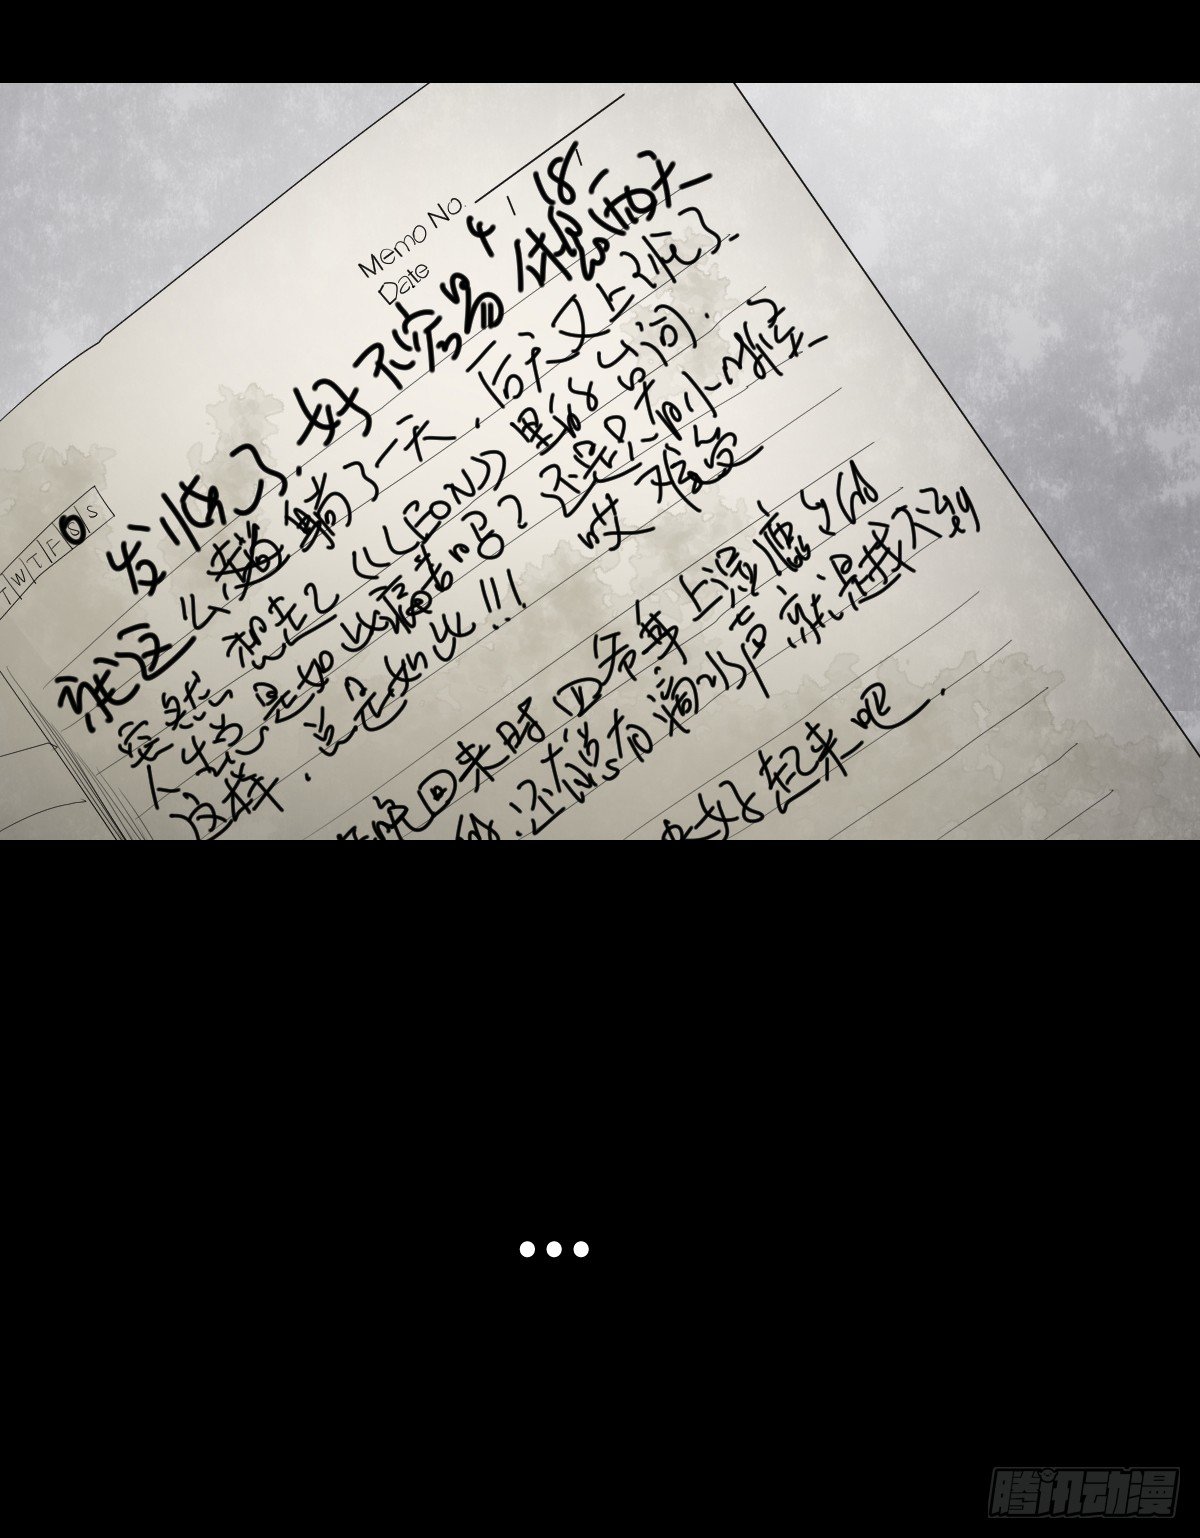 Memo No.
Date 4 / 18
T W T F S S
发烧了.好不容易休息两天
就这么躺了一天,后天又上班了.
突然想起《LEON》里的台词.
人生总是如此痛苦吗?还是只有小时候
这样.总是如此!!! 哎 难受
晚回来时 四爷身上湿漉漉的
还说有滴水声 就是找不到
快好起来吧.
...
腾讯动漫